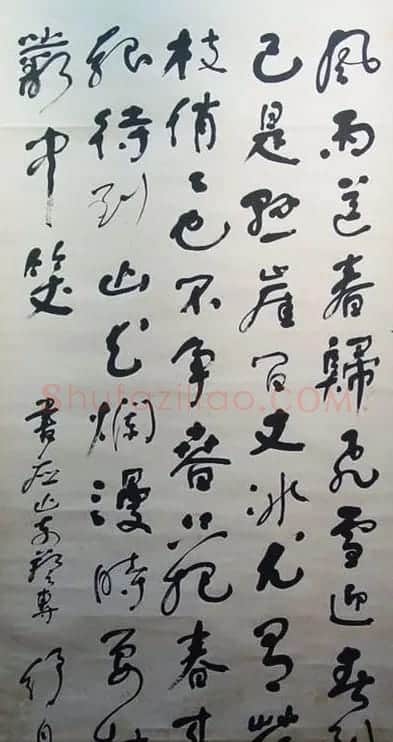 風雨送春歸飛雪迎春到
已是懸崖百丈冰尤有花
枝俏々也不争春只把春来
報待到山花爛漫時
叢中笑
書
Shufazihao.COM